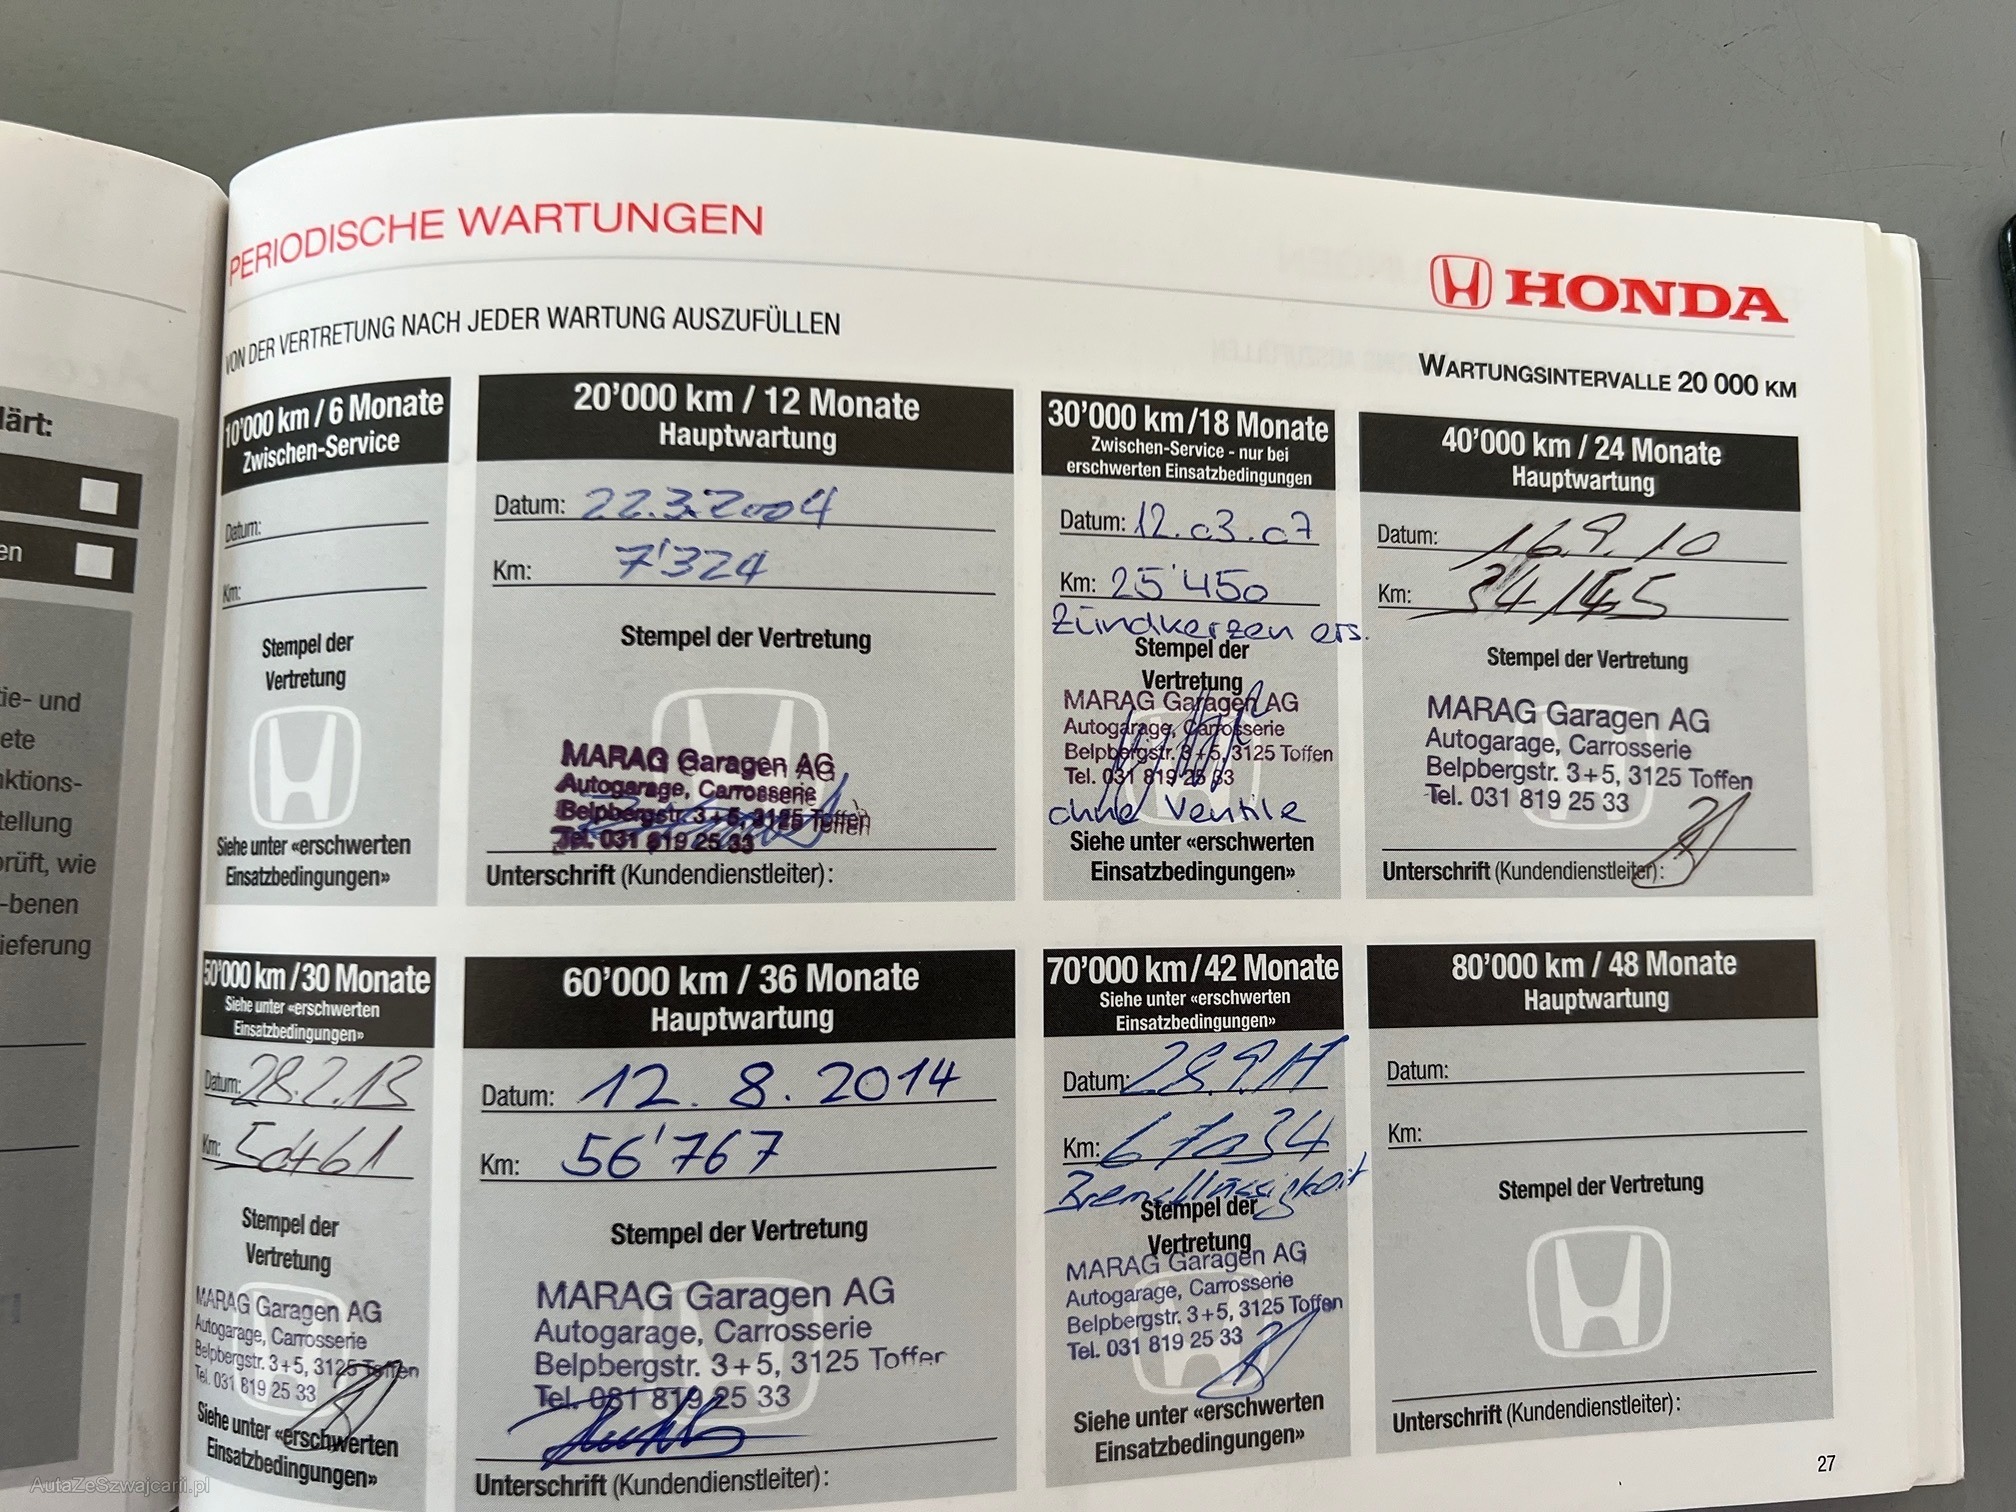 PERIODISCHE WARTUNGEN
HONDA
VON DER VERTRETUNG NACH JEDER WARTUNG AUSZUFÜLLEN
WARTUNGSINTERVALLE 20 000 KM
lärt:
en
ie- und
ete
nktions-
tellung
rüft, wie
-benen
ieferung
10'000 km / 6 Monate
Zwischen-Service
Datum:
Km:
Stempel der
Vertretung
Siehe unter «erschwerten
Einsatzbedingungen»
20'000 km / 12 Monate
Hauptwartung
Datum: 22.3.2004
Km: 7'324
Stempel der Vertretung
MARAG Garagen AG
Autogarage, Carrosserie
Belpbergstr. 3+5, 3125 Toffen
Tel. 031 819 25 33
Unterschrift (Kundendienstleiter):
30'000 km/18 Monate
Zwischen-Service - nur bei
erschwerten Einsatzbedingungen
Datum: 12.03.07
Km: 25'450
Zündkerzen ers.
Stempel der
Vertretung
MARAG Garagen AG
Autogarage, Carrosserie
Belpbergstr. 3+5, 3125 Toffen
Tel. 031 819 25 33
ohne Ventile
Siehe unter «erschwerten
Einsatzbedingungen»
40'000 km / 24 Monate
Hauptwartung
Datum: 16.9.10
Km:
Stempel der Vertretung
MARAG Garagen AG
Autogarage, Carrosserie
Belpbergstr. 3+5, 3125 Toffen
Tel. 031 819 25 33
Unterschrift (Kundendienstleiter):
50'000 km/30 Monate
Siehe unter «erschwerten
Einsatzbedingungen»
Datum: 28.2.13
Km: 50461
Stempel der
Vertretung
MARAG Garagen AG
Autogarage, Carrosserie
Belpbergstr. 3+5, 3125 Toffen
Tel. 031 819 25 33
Siehe unter «erschwerten
Einsatzbedingungen»
60'000 km / 36 Monate
Hauptwartung
Datum: 12.8.2014
Km: 56'767
Stempel der Vertretung
MARAG Garagen AG
Autogarage, Carrosserie
Belpbergstr. 3+5, 3125 Toffen
Tel. 031 819 25 33
Unterschrift (Kundendienstleiter):
70'000 km/42 Monate
Siehe unter «erschwerten
Einsatzbedingungen»
Datum: 28.9.17
Km: 67034
Bremsflüssigkeit
Stempel der
Vertretung
MARAG Garagen AG
Autogarage, Carrosserie
Belpbergstr. 3+5, 3125 Toffen
Tel. 031 819 25 33
Siehe unter «erschwerten
Einsatzbedingungen»
80'000 km / 48 Monate
Hauptwartung
Datum:
Km:
Stempel der Vertretung
Unterschrift (Kundendienstleiter):
27
AutaZeSzwajcarii.pl